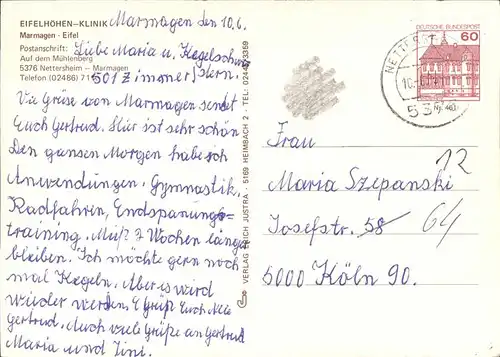 EIFELHÖHEN-KLINIK
Marmagen - Eifel
Postanschrift:
Auf dem Mühlenberg
5376 Nettersheim - Marmagen
Telefon (02486) 71
Marmagen den 10.6.
Liebe Maria u. Kegelschwestern.
501 Zimmer
Vie Grüse von Marmagen sendet
Euch Gertrud. Hier ist sehr schön
Den gansen Morgen habe ich
Anwendungen, Gymnastik,
Radfahren, Endspanungs=
training. Muß 2 Wochen länger
bleiben. Ich möchte gern noch
mal Kegeln. Aber es wird
wieder werden. Es grüß Euch
Gertrud. Auch viele Grüße an Gertrud
Maria und Tini.
VERLAG ERICH JUSTRA · 5169 HEIMBACH 2 · TEL.: 02446/3359
DEUTSCHE BUNDESPOST
60
NETTERSHEIM
10.
53
Frau
12
Maria Szepanski
Josefstr. 58 64
5000 Köln 90.